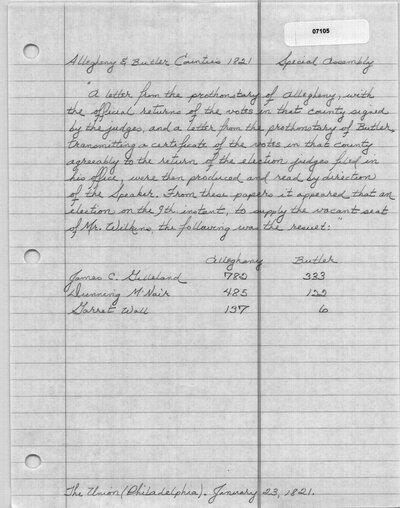 07105
Allegheny & Butler Counties 1821 Special Assembly
"A letter from the prothonotary of Allegheny, with
the official returns of the votes in that county signed
by the judges, and a letter from the prothonotary of Butler,
transmitting a certificate of the votes in that county
agreeably to the return of the election judges filed in
his office, were then produced and read by direction
of the Speaker. From these papers it appeared that an
election on the 9th instant, to supply the vacant seat
of Mr. Wilkins, the following was the result:"
Allegheny Butler
James C. Gilleland 782 333
Dunning McNair 485 122
Garret Wall 137 6
The Union (Philadelphia). January 23, 1821.